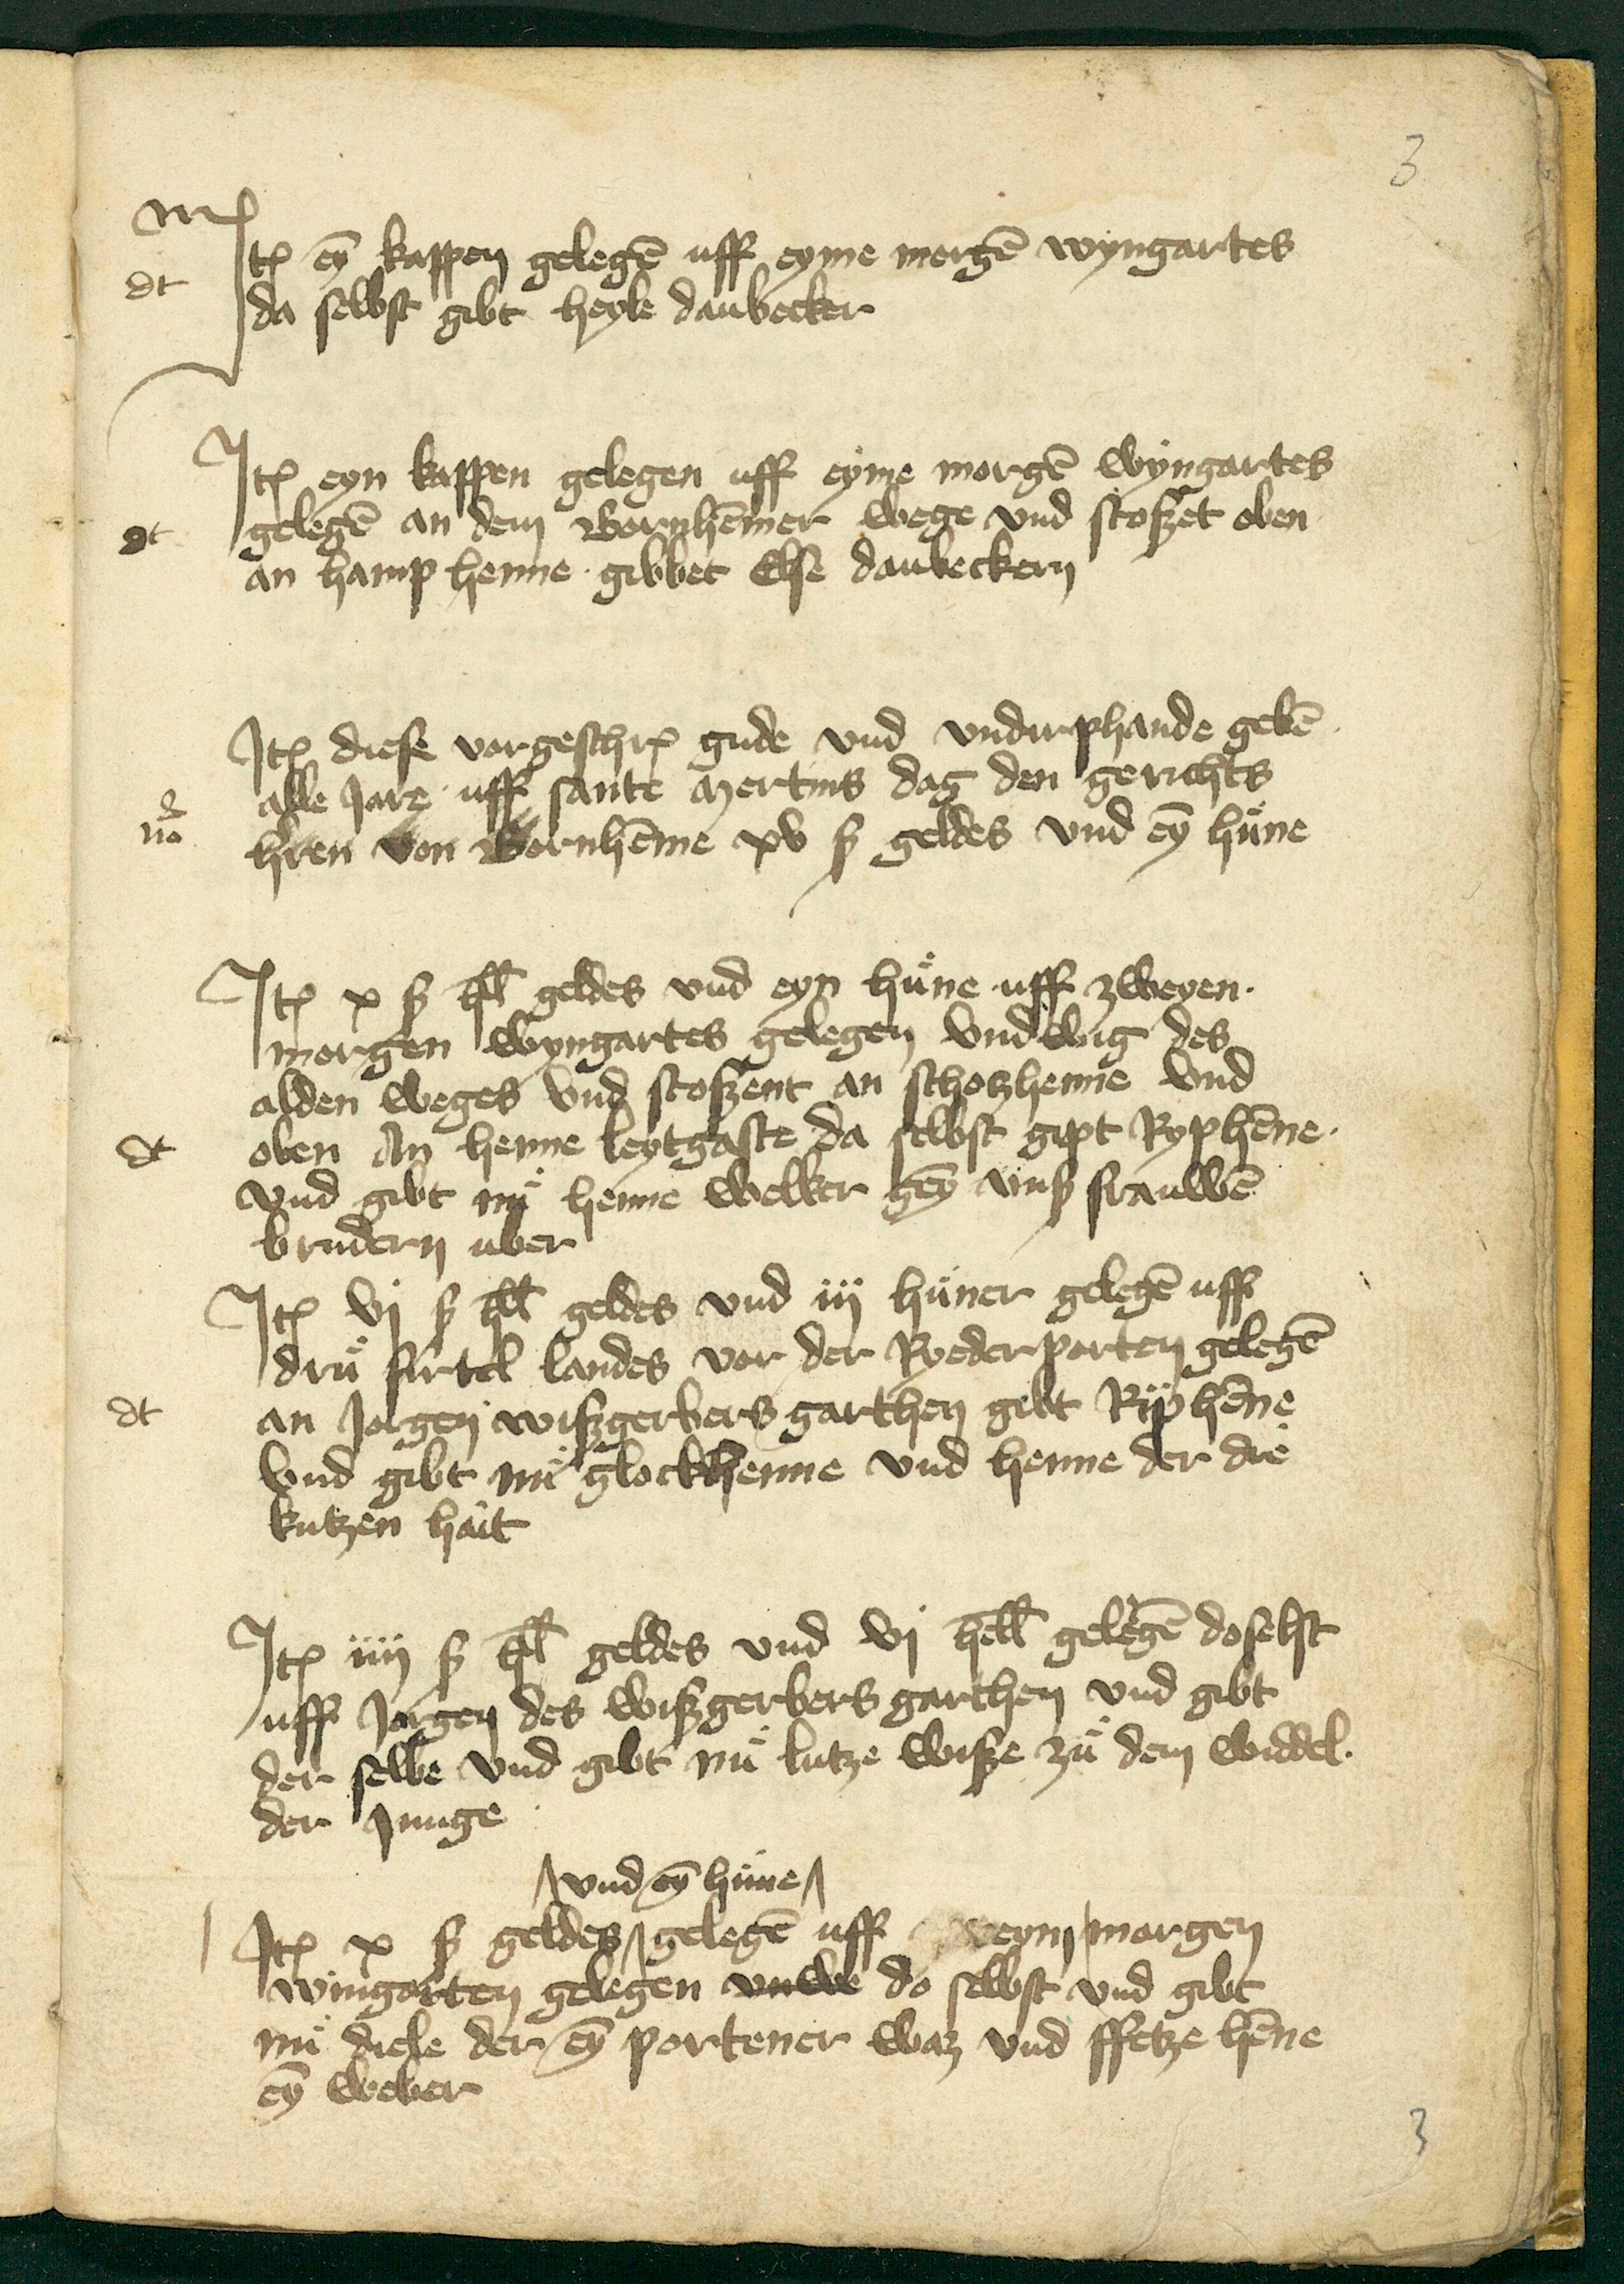 3
Itꝫ eȳ kappen gelegē uff eyme morgē wyngartes
dt
da selbst gibt heyle daubecker
Itꝫ eyn kappen gelegen uff eyme morgē wyngartes
dt
gelegē an dem Bornhēmer wege vnd stoßet oben
an hamp henne gibbet Else daubeckern
Itꝫ diese vorgeschrꝫ gude vnd vndirphande gebē
alle Jare uff sante Mertins dag den gerichts
hren von Bornhēme xv ß geldes vnd eȳ hůne
Itꝫ x ß hll̄ geldes vnd eyn hůne uff zweyen
morgen wyngartes gelegen vndwīg des
alden weges vnd stoßent an schotzhenne vnd
dt
oben An henne leytgaste da selbst gipt Ryphēne
vnd gibt nů henne welker gēy vnß frauwē
brudern uber
Itꝫ vj ß hll̄ geldes vnd iij hůner gelegē uff
drů firtel landes vor der Ryederporten gelegē
dt
an Jorgen wißgerbers garthen gibt Ryphēne
Vnd gibt nů glockhenne vnd henne der die
kutzen hait
Itꝫ iiij ß hll̄ geldes vnd vj hell̄ gelegē doselbst
uff Jorgen des wißgerbers garthen vnd gibt
der selbe vnd gibt nů lutze wiße zů dem widdel
der Junge
vnd eȳ hůne
Itꝫ x ß geldes gelegē uff zweyn morgen
wingarten gelegen do selbst vnd gibt
nů diele der eȳ portener waz vnd ffetze hēne
eȳ weber
3